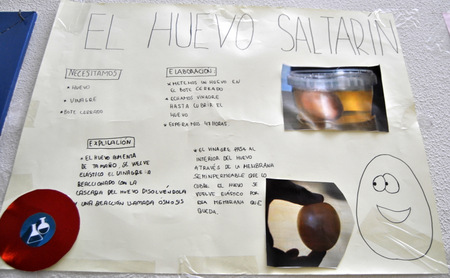 EL HUEVO SALTARIN
NECESITAMOS:
• HUEVO
• VINAGRE
• BOTE CERRADO
ELABORACION:
• METEMOS UN HUEVO EN
EL BOTE CERRADO
• ECHAMOS VINAGRE
HASTA CUBRIR EL
HUEVO
• ESPERAMOS 48 HORAS
EXPLICACION:
• EL HUEVO AUMENTA
DE TAMAÑO, SE VUELVE
ELASTICO EL VINAGRE
REACCIONADO CON LA
CASCARA DEL HUEVO DISOLVIENDOLA
Y UNA REACCION LLAMADA OSMOSIS
• EL VINAGRE PASA AL
INTERIOR DEL HUEVO
A TRAVÉS DE LA MEMBRANA
SEMIPERMEABLE QUE LO
CUBRE. EL HUEVO SE
VUELVE ELASTICO POR
ESA MEMBRANA QUE
QUEDA.